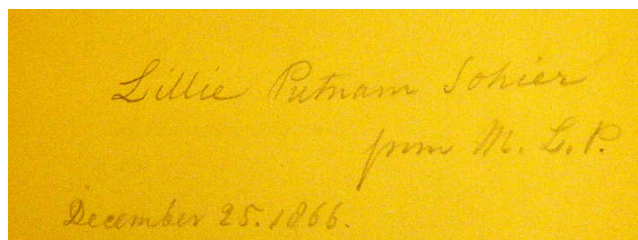 Lillie Putnam Sohier
from M. L. P.
December 25. 1866.